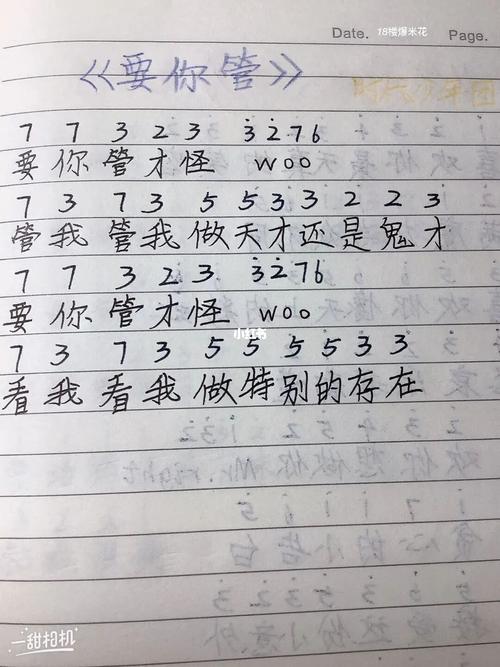 Date. 18楼爆米花 Page.
《要你管》
时代少年团
7 7 3 2 3 3 2 7 6
要你管才怪 woo
7 3 7 3 5 5 3 3 2 2 3
管我管我做天才还是鬼才
7 7 3 2 3 3 2 7 6
要你管才怪 woo
小红书
7 3 7 3 5 5 5 5 3 3
看我看我做特别的存在
一甜相机